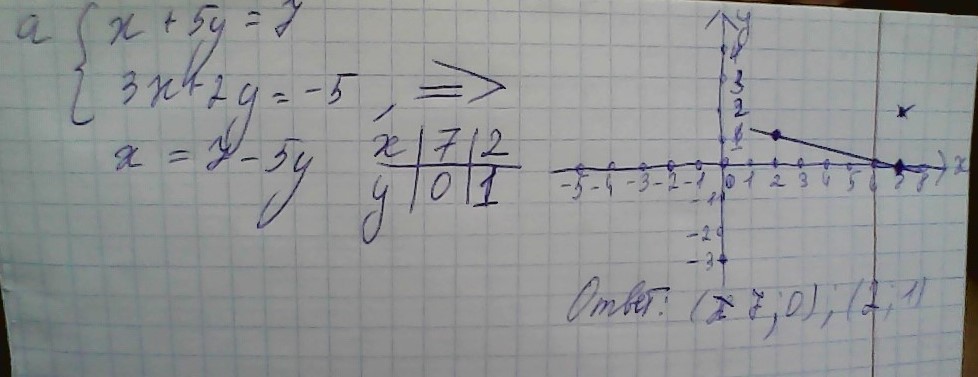 а { x + 5y = 7
3x + 2y = -5 , =>
x = 7 - 5y
x | 7 | 2
y | 0 | 1
y
4
3
2
1
-5 -4 -3 -2 -1 0 1 2 3 4 5 6 7 8 x
-1
-2
-3
Ответ: (7; 0); (2; 1)